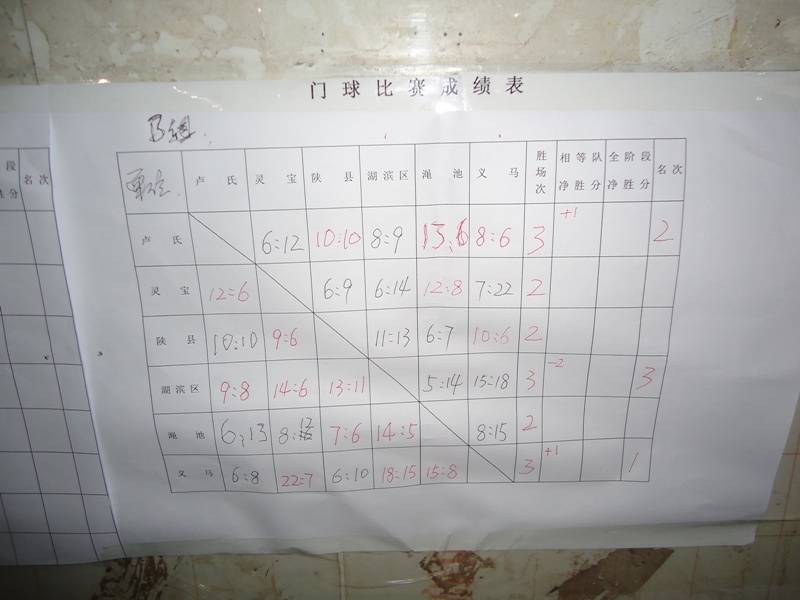 门球比赛成绩表
B组
单位 卢氏 灵宝 陕县 湖滨区 渑池 义马 胜场次 相等队净胜分 全阶段净胜分 名次
卢氏 6:12 10:10 8:9 13:6 8:6 3 +1 2
灵宝 12:6 6:9 6:14 12:8 7:22 2
陕县 10:10 9:6 11:13 6:7 10:6 2
湖滨区 9:8 14:6 13:11 5:14 15:18 3 -2 3
渑池 6:13 8:12 7:6 14:5 8:15 2
义马 6:8 22:7 6:10 18:15 15:8 3 +1 1
段 名次
胜分